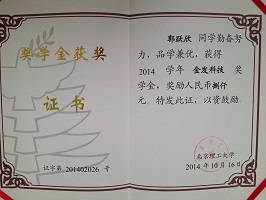 奖学金获奖
证书
证字第 201402026 号
郭跃欣 同学勤奋努
力，品学兼优，获得
2014 学年 金发科技 奖
学金，奖励人民币捌仟
元。特发此证，以资鼓励。
北京理工大学
2014 年 10 月 16 日